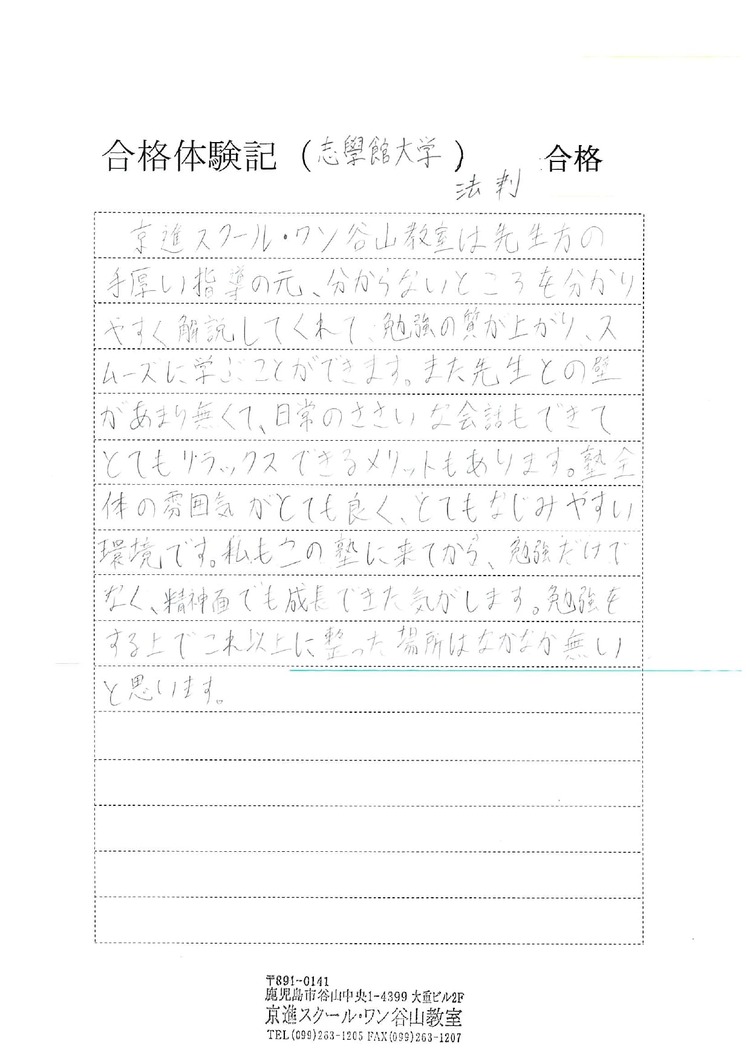 合格体験記（志學館大学）　合格
法判
京進スクール・ワン谷山教室は先生方の
手厚い指導の元、分からないところを分かり
やすく解説してくれて、勉強の質が上がり、ス
ムーズに学ぶことができます。また先生との壁
があまり無くて、日常のささいな会話もできて
とてもリラックスできるメリットもあります。塾全
体の雰囲気がとても良く、とてもなじみやすい
環境です。私もこの塾に来てから、勉強だけで
なく、精神面でも成長できた気がします。勉強を
する上でこれ以上に整った場所はなかなか無い
と思います。
〒891-0141
鹿児島市谷山中央1-4399 大重ビル2F
京進スクール・ワン谷山教室
TEL(099)263-1205 FAX(099)263-1207